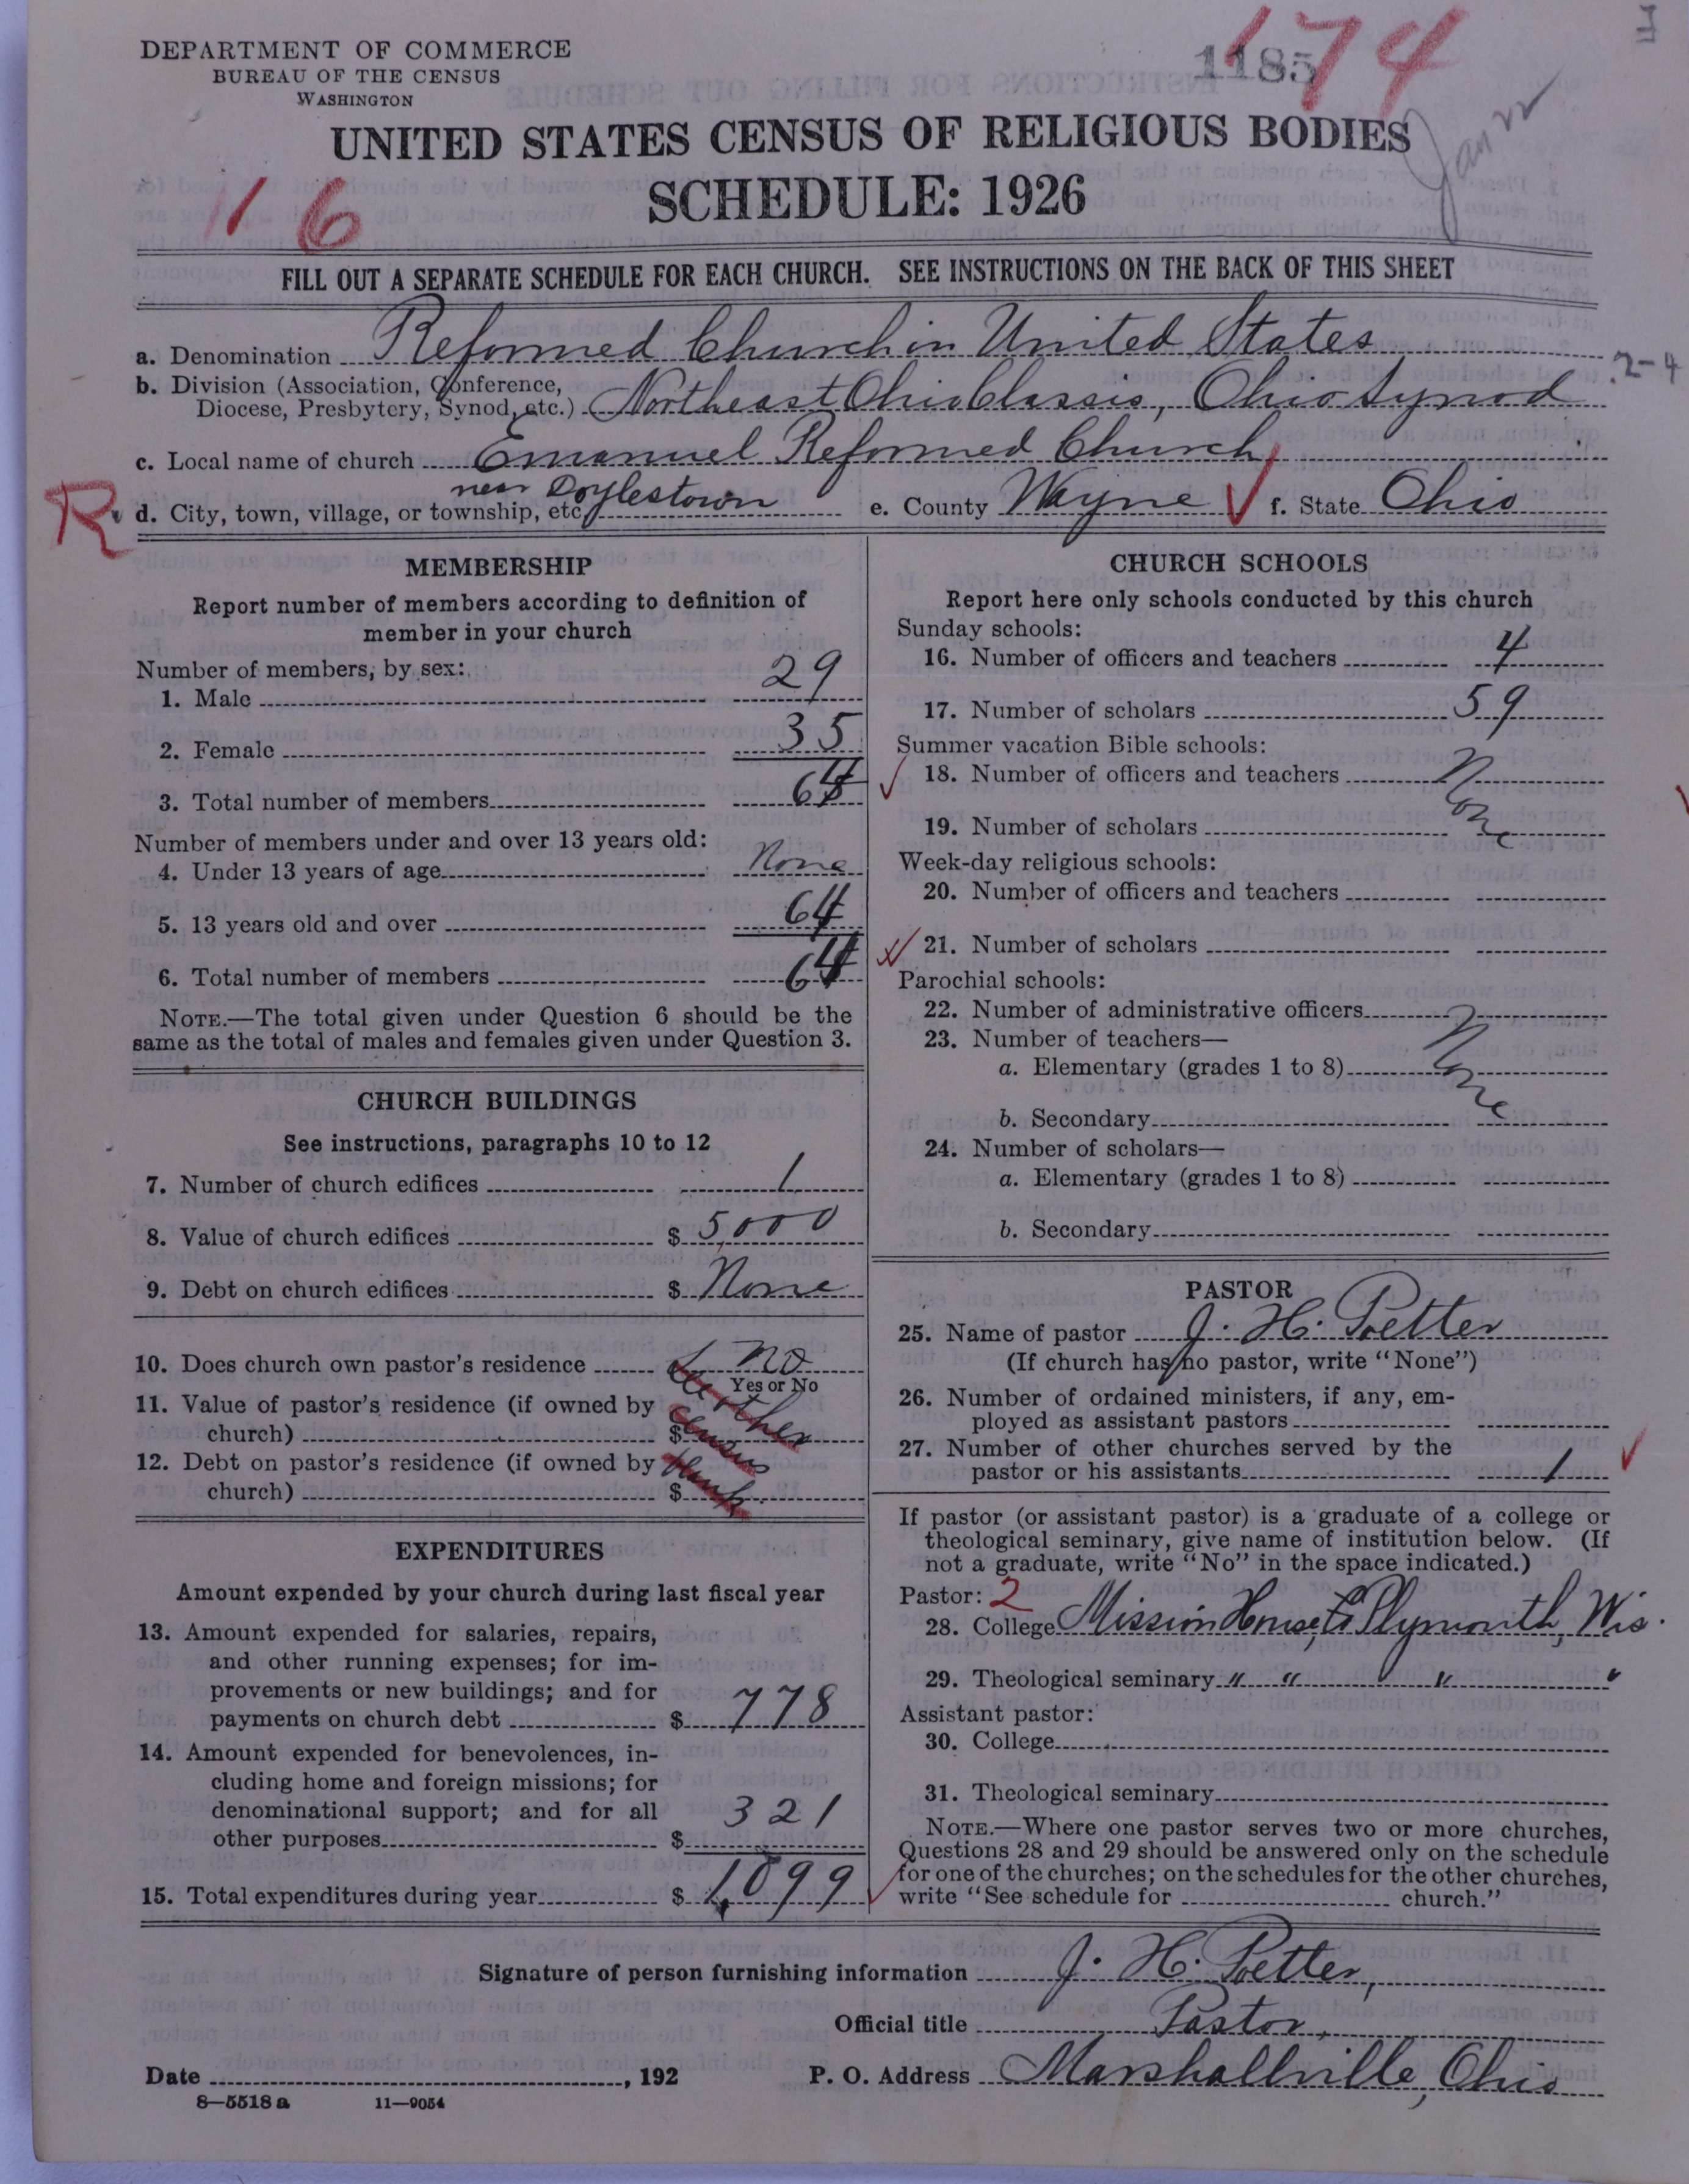 DEPARTMENT OF COMMERCE
BUREAU OF THE CENSUS
WASHINGTON
1185
174
UNITED STATES CENSUS OF RELIGIOUS BODIES
SCHEDULE: 1926
16
FILL OUT A SEPARATE SCHEDULE FOR EACH CHURCH. SEE INSTRUCTIONS ON THE BACK OF THIS SHEET
a. Denomination Reformed Church in United States
2-4
b. Division (Association, Conference,
Diocese, Presbytery, Synod, etc.) Northeast Ohio Classis, Ohio Synod
c. Local name of church Emanuel Reformed Church
R
d. City, town, village, or township, etc. near Doylestown e. County Wayne f. State Ohio
MEMBERSHIP
Report number of members according to definition of
member in your church
Number of members, by sex:
1. Male 29
2. Female 35
3. Total number of members 64
Number of members under and over 13 years old:
4. Under 13 years of age None
5. 13 years old and over 64
6. Total number of members 64
NOTE.—The total given under Question 6 should be the
same as the total of males and females given under Question 3.
CHURCH BUILDINGS
See instructions, paragraphs 10 to 12
7. Number of church edifices 1
8. Value of church edifices $ 5,000
9. Debt on church edifices $ None
10. Does church own pastor's residence no
Yes or No
11. Value of pastor's residence (if owned by
church) $
12. Debt on pastor's residence (if owned by
church) $
See other
census
blank.
EXPENDITURES
Amount expended by your church during last fiscal year
13. Amount expended for salaries, repairs,
and other running expenses; for im-
provements or new buildings; and for
payments on church debt $ 778
14. Amount expended for benevolences, in-
cluding home and foreign missions; for
denominational support; and for all
other purposes $ 321
15. Total expenditures during year $ 1,099
CHURCH SCHOOLS
Report here only schools conducted by this church
Sunday schools:
16. Number of officers and teachers 4
17. Number of scholars 59
Summer vacation Bible schools:
18. Number of officers and teachers None
19. Number of scholars
Week-day religious schools:
20. Number of officers and teachers
21. Number of scholars
Parochial schools:
22. Number of administrative officers None
23. Number of teachers—
a. Elementary (grades 1 to 8)
b. Secondary
24. Number of scholars—
a. Elementary (grades 1 to 8)
b. Secondary
PASTOR
25. Name of pastor J. H. Poetter
(If church has no pastor, write "None")
26. Number of ordained ministers, if any, em-
ployed as assistant pastors
27. Number of other churches served by the
pastor or his assistants 1
If pastor (or assistant pastor) is a graduate of a college or
theological seminary, give name of institution below. (If
not a graduate, write "No" in the space indicated.)
Pastor: 2
28. College Mission House, Plymouth, Wis.
29. Theological seminary " " " "
Assistant pastor:
30. College
31. Theological seminary
NOTE.—Where one pastor serves two or more churches,
Questions 28 and 29 should be answered only on the schedule
for one of the churches; on the schedules for the other churches,
write "See schedule for church."
Signature of person furnishing information J. H. Poetter,
Official title Pastor,
Date , 192 P. O. Address Marshallville, Ohio
8—5518 a 11—9054